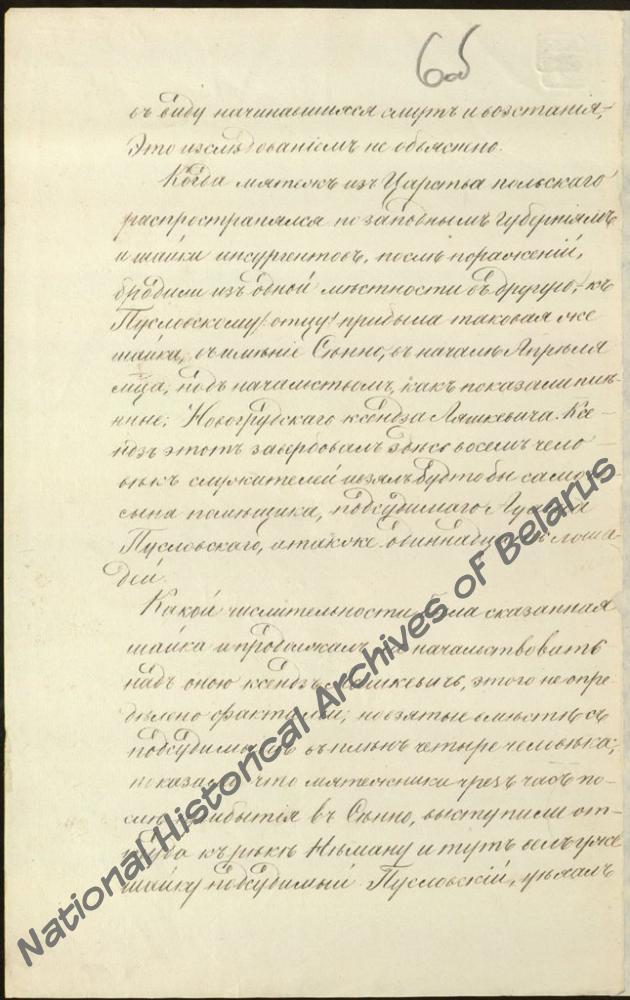 65
въ виду начинавшихся смутъ и возстанія,—
Это изслѣдованіемъ не объяснено.
Когда мятежъ изъ Царства польскаго
распространялся по западнымъ Губерніямъ
и шайки инсургентовъ, послѣ пораженій,
бродили изъ одной мѣстности въ другую,— къ
Пусловскому /отцу/ прибыла таковая же
шайка, въ имѣніе Сѣнно, въ началѣ Апрѣля
м̃ца, подъ начальствомъ, какъ показали плѣн-
ные, Новогрудскаго ксендза Ляшкевича. Ксе-
ндзъ этотъ завербовалъ здѣсь восемь чело-
вѣкъ служителей и взялъ будто бы самого
сына помѣщика, подсудимаго
Пусловскаго, а также одиннадцать лоша-
дей.
Какой числительности была сказанная
шайка и продолжалъ ли начальствовать
надъ оною ксендзъ Ляшкевичъ, этого не опре-
дѣлено фактами; но взятые вмѣстѣ съ
подсудимымъ въ плѣнъ четыре человѣка,
показали, что мятежники чрезъ часъ по-
слѣ прибытія въ Сѣнно, выступили от-
туда къ рѣкѣ Нѣману и тутъ велъ уже
шайку подсудимый Пусловскій, уѣхалъ
National Historical Archives of Belarus